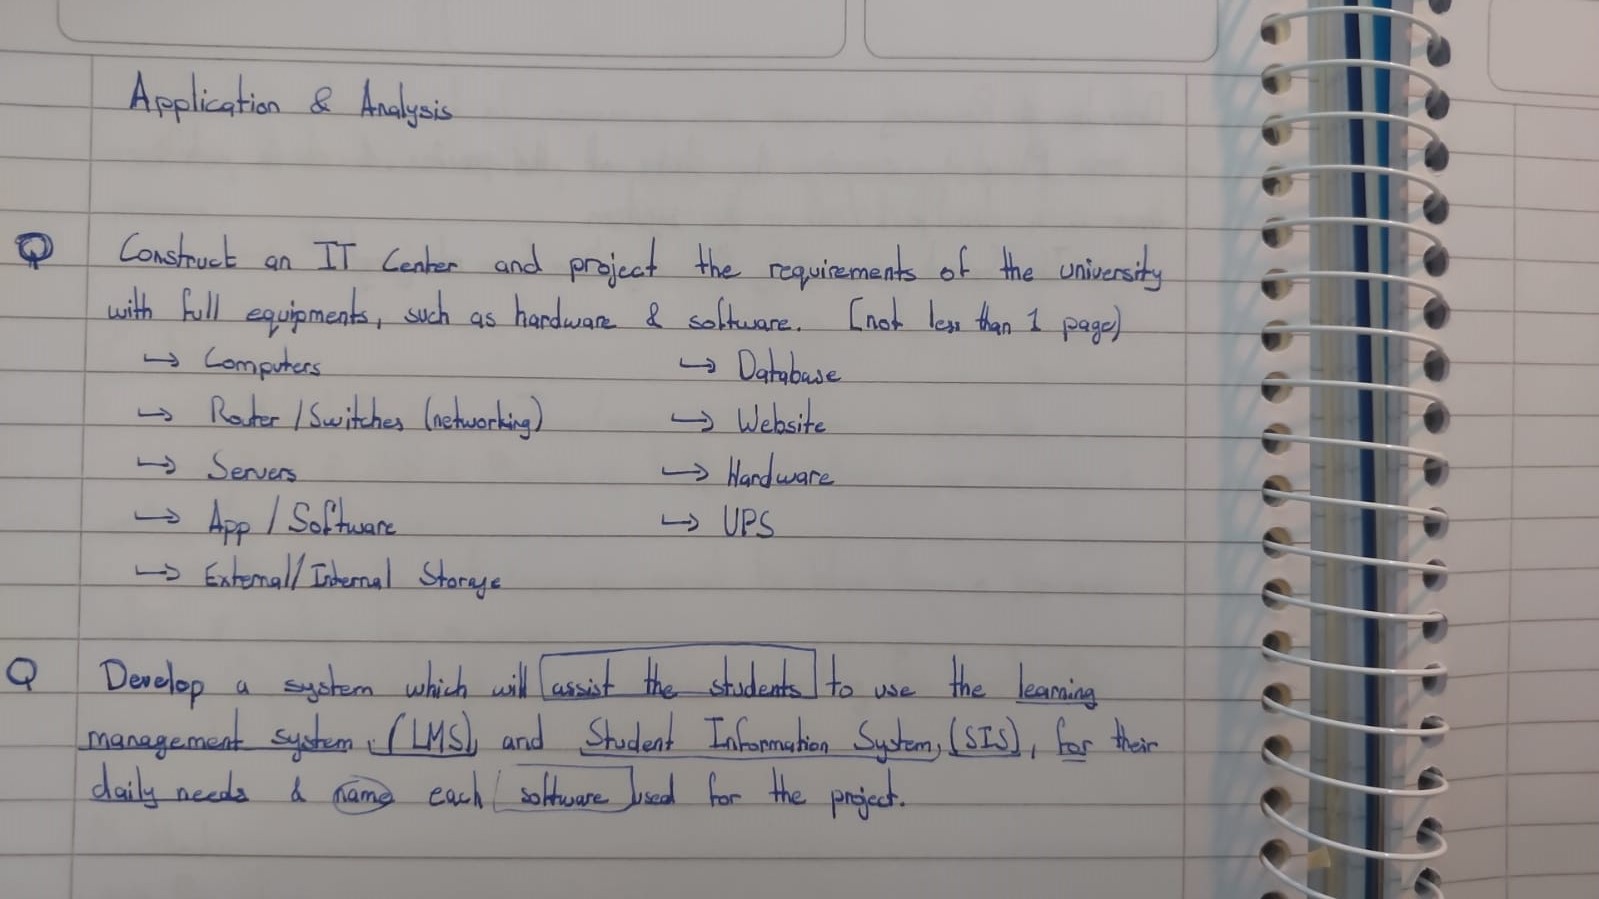 Application & Analysis
Q Construct an IT Center and project the requirements of the university
with full equipments, such as hardware & software. [not less than 1 page)
→ Computers → Database
→ Router / Switches (networking) → Website
→ Servers → Hardware
→ App / Software → UPS
→ External/Internal Storage
Q Develop a system which will assist the students to use the learning
management system, (LMS), and Student Information System, (SIS), for their
daily needs & name each software used for the project.